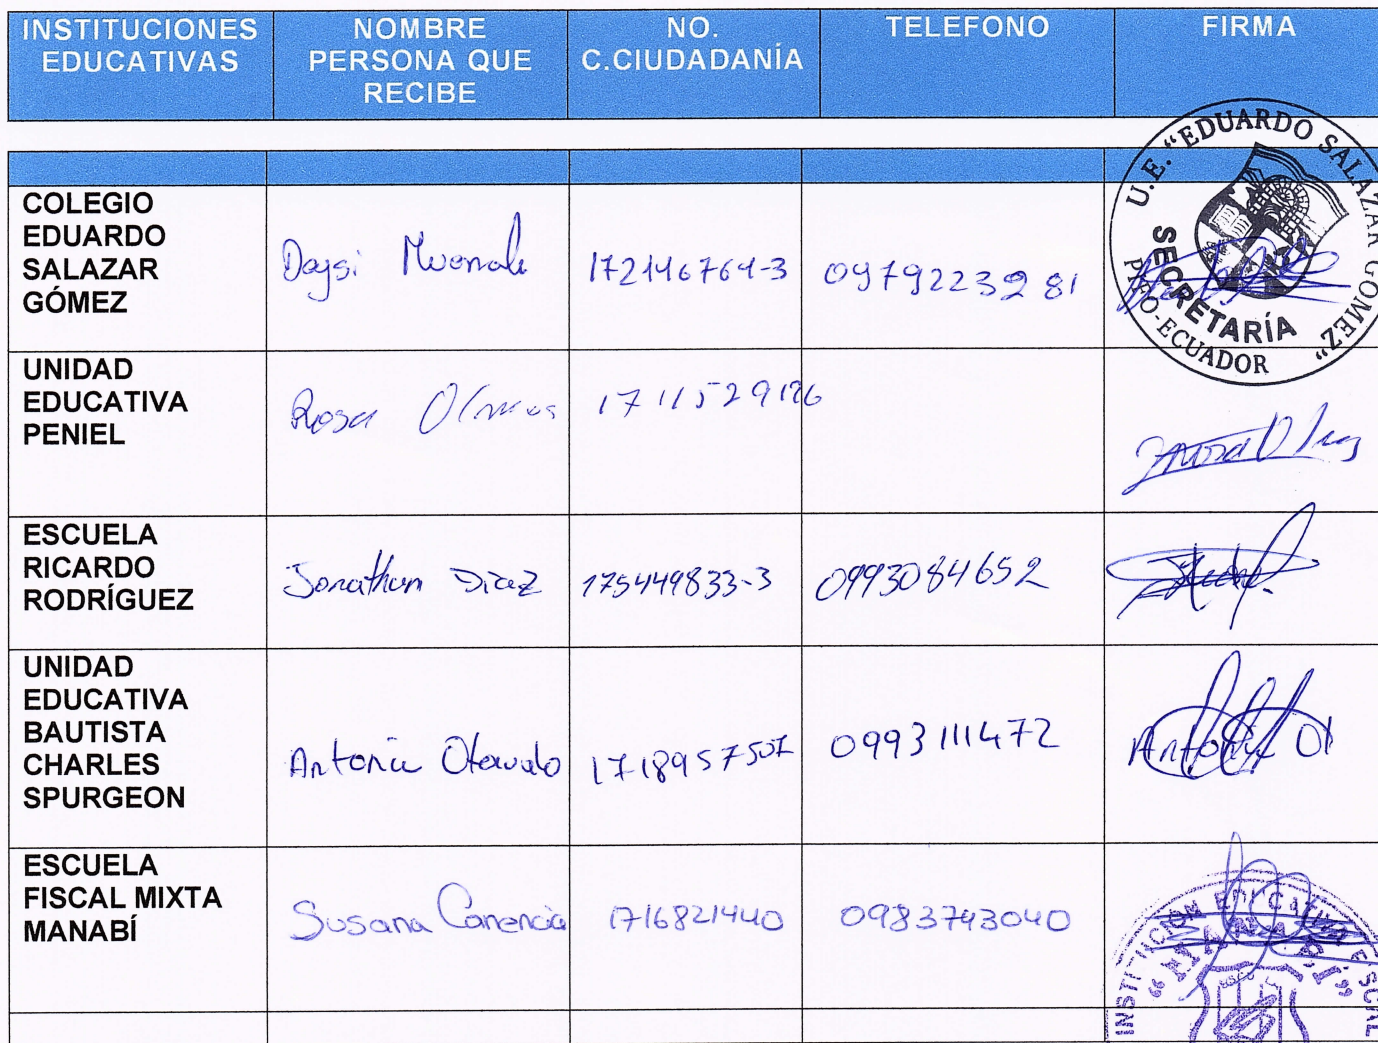 INSTITUCIONES EDUCATIVAS
NOMBRE PERSONA QUE RECIBE
NO. C.CIUDADANÍA
TELEFONO
FIRMA
COLEGIO
EDUARDO
SALAZAR
GÓMEZ
Daysi
0979223281
U.E. "EDUARDO SALAZAR GOMEZ"
SECRETARÍA
PIFO-ECUADOR
UNIDAD
EDUCATIVA
PENIEL
Rosa Olmos
ESCUELA
RICARDO
RODRÍGUEZ
Jonathan Díaz 175449833-3 0993084652
UNIDAD
EDUCATIVA
BAUTISTA
CHARLES
SPURGEON
Antonia Otavalo 1718957507 0993111472
Antonia Ot
ESCUELA
FISCAL MIXTA
MANABÍ
Susana Canencia 1716821440 0983743040
INSTITUCIÓN EDUCATIVA FISCAL
"MANABÍ"